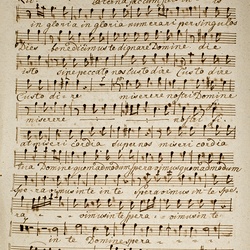 in gloria in gloria numerari per singulos
Dies benedicimus te dignare Domine die
isto sine peccato nos custodire Custodire
Custodire miserere nostri Domine
miserere nostri fi
at misericordia super nos misericordia
tua Domine quemadmodum speravimus quemadmodum
speravimus in te in te speravimus in te spe
ravimus in te spera vimus in te
in te Domine spera